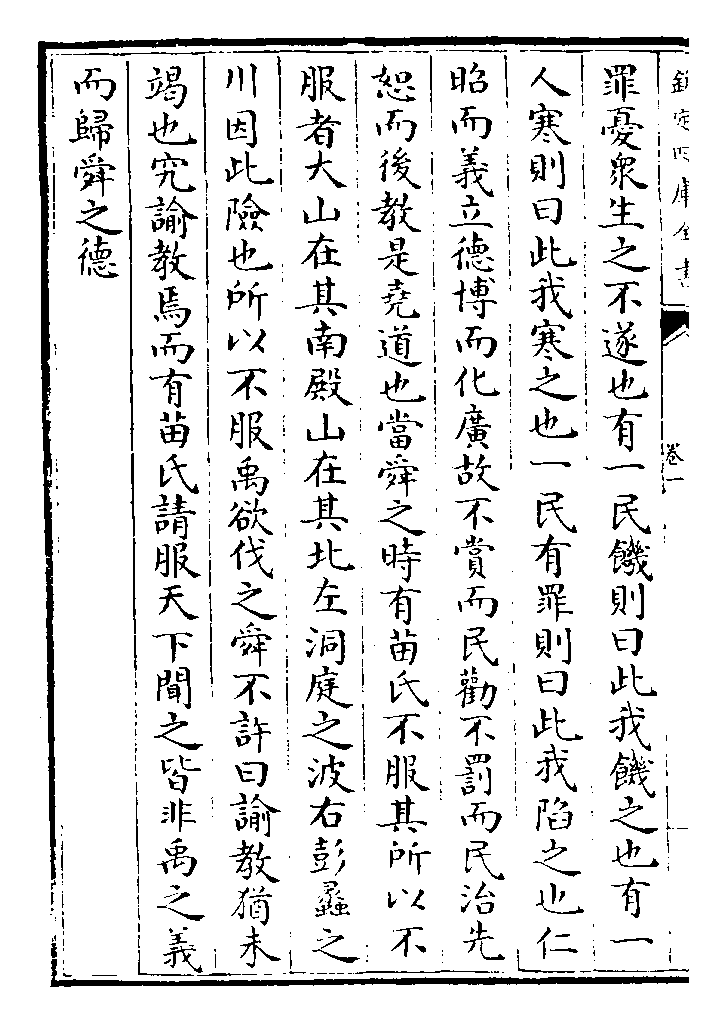 欽定四庫全書
卷一
罪憂衆生之不遂也有一民饑則曰此我饑之也有一
人寒則曰此我寒之也一民有罪則曰此我陷之也仁
昭而義立德博而化廣故不賞而民勸不罰而民治先
恕而後教是堯道也當舜之時有苗氏不服其所以不
服者大山在其南殿山在其北左洞庭之波右彭蠡之
川因此險也所以不服禹欲伐之舜不許曰諭教猶未
竭也究諭教焉而有苗氏請服天下聞之皆非禹之義
而歸舜之德